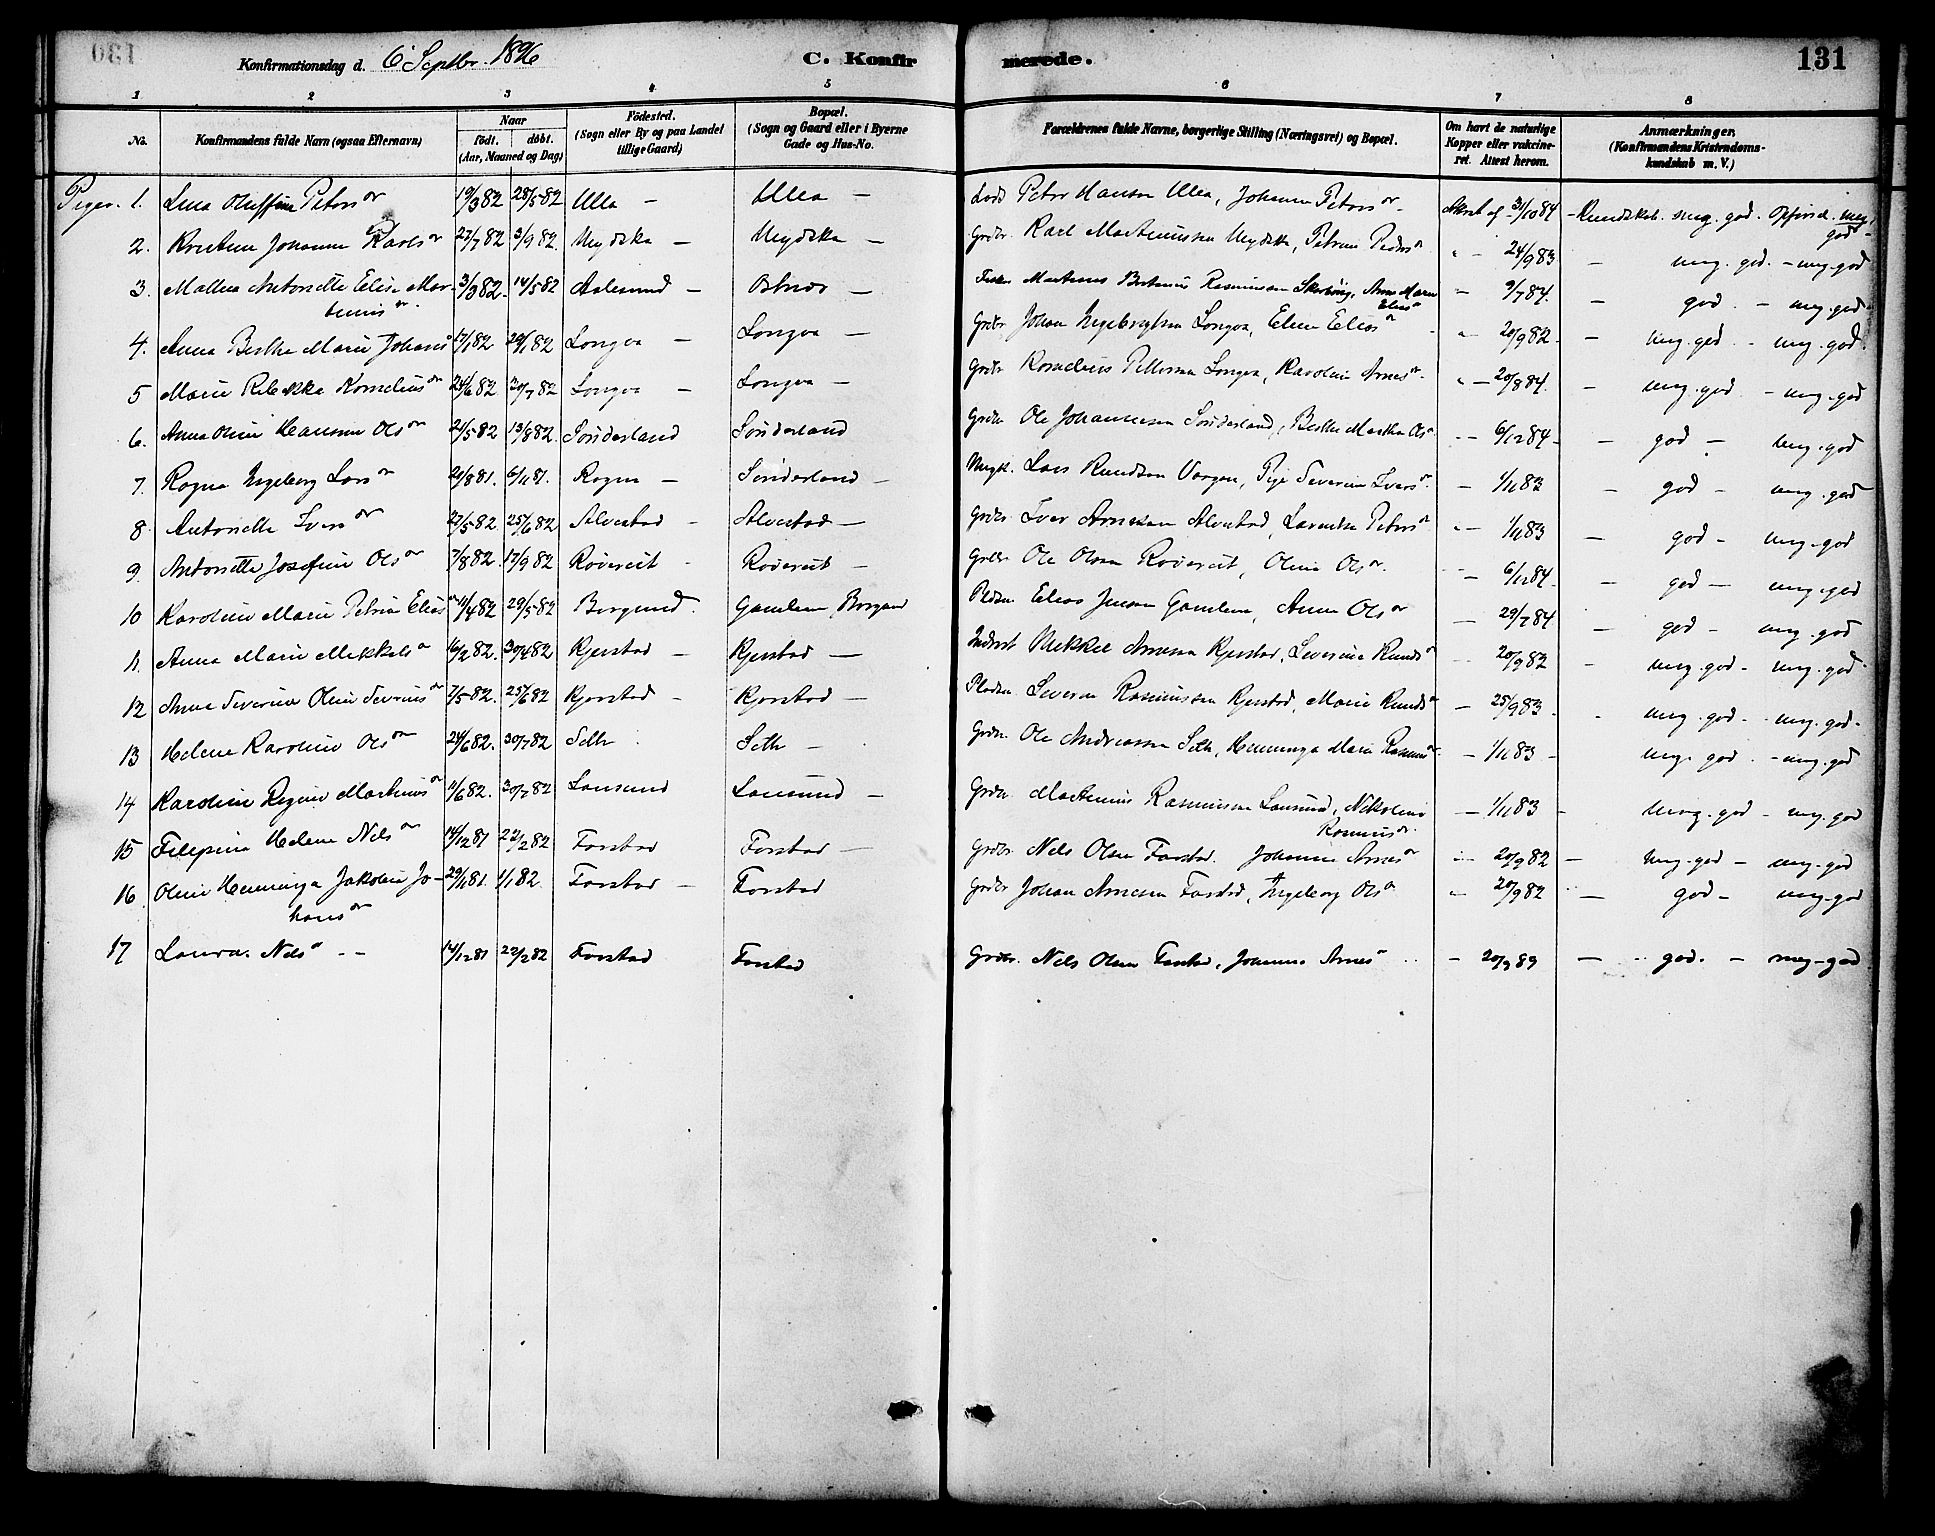 130
Konfirmationsdag d. 6 Septbr. 1896 C. Konfirmerede. 131
1 2 3 4 5 6 7 8
No. Konfirmandens fulde Navn (ogsaa Efternavn) Naar födt. döbt. (Aar, Maaned og Dag) Födested. (Sogn eller By og paa Landet tillige Gaard) Bopæl. (Sogn og Gaard eller i Byerne Gade og Hus-No. Forældrenes fulde Navne, borgerlige Stilling (Næringsvei) og Bopæl. Om havt de naturlige Kopper eller vakcineret. Attest herom. Anmærkninger. (Konfirmandens Kristendomskundskab m. V.)
Piger. 1. Lina Oluffine Petersdr 19/3 82 28/5 82 Ulla — Ulla — Peter Hansen Ulla, Johanne Petersdr. Attest af 31/10 84 - Kundskab. meg. god. Opförsel. meg god
2. Kristine Johanne Karlsdr 27/7 82 3/9 82. — — Grdbr. Karl Martinussen Petrine Pedersdr " - 24/9 83 — meg. god. - meg. god
3. Mathea Antonette Elise Martinusdr. 3/3 82. 14/5 82 Aalesund — Ostnes — Martinus Rasmussen Anne Marie Eliasdr — 9/7 84. — god. — meg. god
4. Anna Berthe Marie Johansdr 17/1 82 29/1 82 Longva — Longva — Grdbr. Johan Ingebrigtsen Longva, Eline Eliasdr " - 20/9 82. — meg. god. - meg. god.
5 Marie Rebekka Korneliusdr 24/6 82 30/7 82 Longva — Longva — Grdbr. Kornelius Pettersen Longva, Karoline Arnesdr. " — 20/8 84. — meg. god — meg. god
6. Anna Oline Olsdr 21/5 82 13/8 82. Sönderland Sönderland Grdbr. Ole Johannessen Sönderland, Berthe Marthe Olsdr. — 6/12 84 — — god — meg. god
7. Ragna Ingeborg Larsdr 21/8 81. 6/11 81. Rogne — Sönderland — Ungk. Lars Knudsen Pige Severine Iversdr. — 1/11 83 — god — meg. god
8. Antonette Iversdr 27/5 82. 25/6 82 Alvestad — Alvestad — Grdbr. Iver Arnesen Alvestad, Petersdr — 1/11 83 — god — meg. god
9. Antonette Josefine Olsdr 7/8 82. 17/9 82 Röverut — Röverut — Grdbr. Ole Olsen Röverut, Oline Olsdr. — 6/12 84. — god — meg. god
10 Karoline Marie Petrine Eliasdr 11/4 82 29/5 82 Borgund. Gamlem, Borgund Elias Jensen Gamlem, Anne Olsdr — 29/7 84 — god — meg. god
11. Anna Marie Mikkelsdr 16/2 82. 30/4 82 Kjerstad — Kjerstad — Inderst Mikkel Arnesen Kjerstad, Severine Knudsdr — 20/9 82 — meg. god — meg. god.
12 Anne Severine Oline Severinsdr 7/5 82. 25/6 82 Kjerstad — Kjerstad — Pladsm. Severin Rasmussen Kjerstad, Marie Knudsdr — 25/9 83 — meg. god — meg. god.
13 Helene Karoline Olsdr 24/6 82. 30/7 82 Seth. Seth — Grdbr. Ole Andreassen Seth, Henninga Marie Rasmusdr. — 1/11 83 — meg. god. — meg. god
14 Karoline Regine Martinusdr 11/6 82. 30/7 82 Lausund Lausund — Grdbr. Martinus Rasmussen Lausund, Nikoline Rasmusdr. — 1/11 83 — meg. god — meg. god
15 Filipine Helene Nilsdr 14/12 81 22/2 82 Farstad Farstad — Grdbr. Nils Olsen Farstad. Johanne Arnesdr — 20/9 82 — meg. god — meg. god
16 Oline Henninga Jakobine Johansdr 29/11 81. 1/1 82. Farstad — Farstad Grdbr. Johan Arnesen Farstad, Ingeborg Olsdr — 20/9 82 — god — meg. god
17 Laura Nilsdr — 14/12 81 22/2 82 Farstad Farstad Grdbr. Nils Olsen Farstad, Johanne Arnesdr — 20/9 89 — god. — meg. god